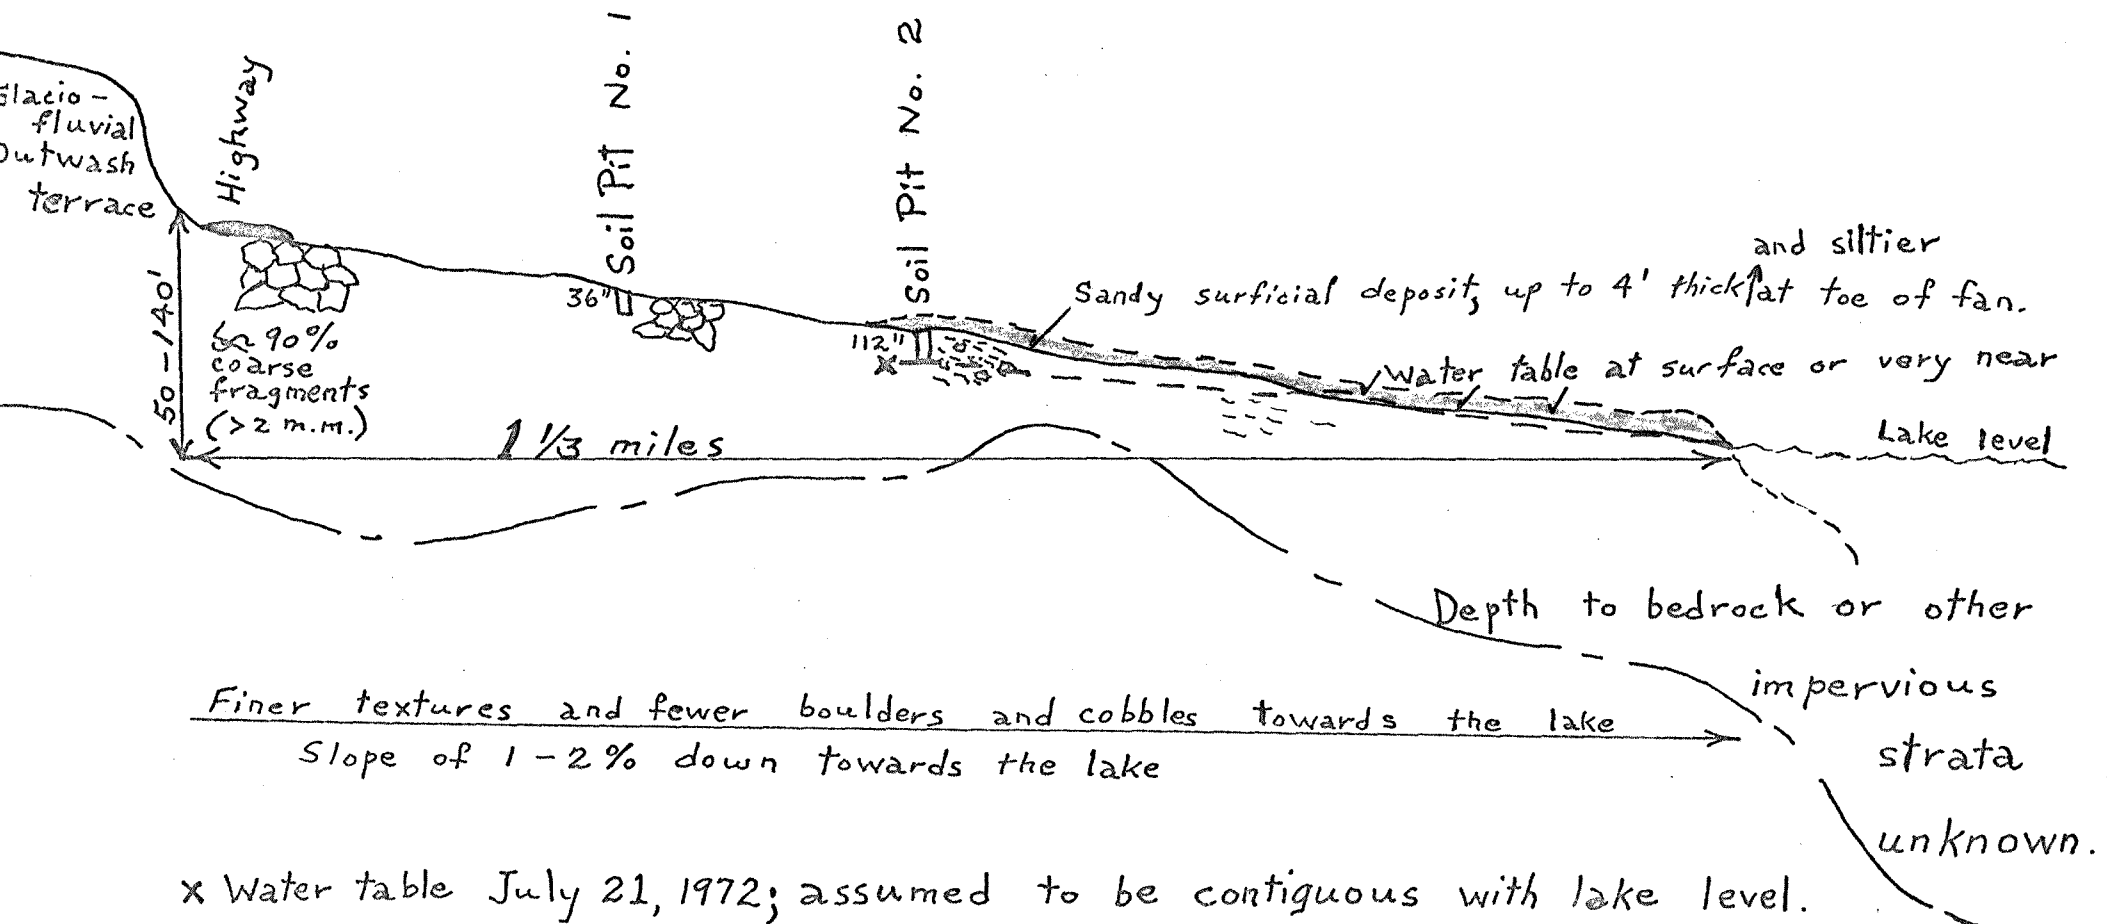 Glacio-
fluvial
Outwash
terrace
Highway
Soil Pit No. 1
Soil Pit No. 2
and siltier
Sandy surficial deposit, up to 4' thick at toe of fan.
36"
112"
x
Water table at surface or very near
50-140'
90%
coarse
fragments
(>2 m.m.)
1 1/3 miles
Lake level
Depth to bedrock or other
impervious
strata
unknown.
Finer textures and fewer boulders and cobbles towards the lake
Slope of 1-2% down towards the lake
x Water table July 21, 1972; assumed to be contiguous with lake level.